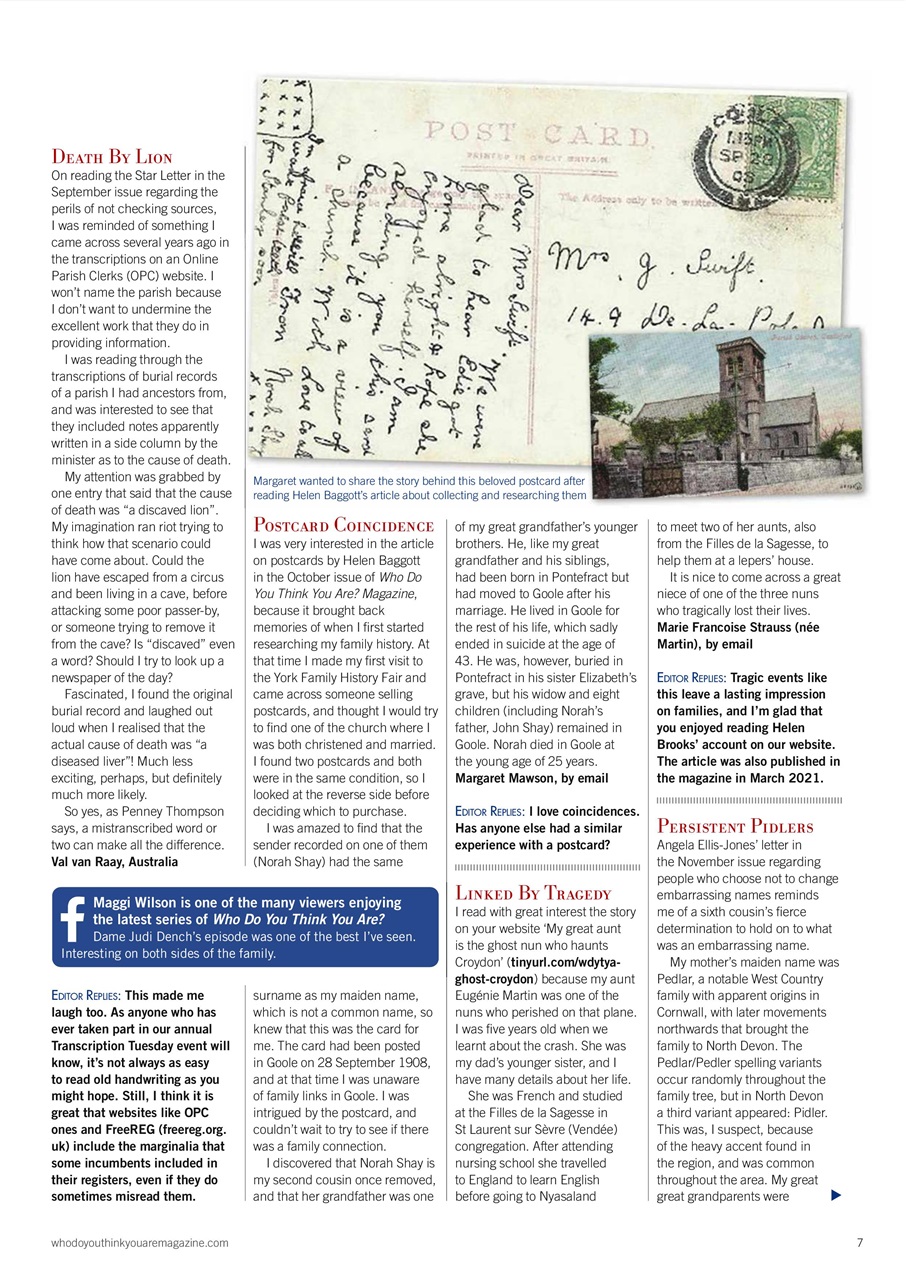 DEATH BY LION
On reading the Star Letter in the
September issue regarding the
perils of not checking sources,
I was reminded of something I
came across several years ago in
the transcriptions on an Online
Parish Clerks (OPC) website. I
won't name the parish because
I don't want to undermine the
excellent work that they do in
providing information.
I was reading through the
transcriptions of burial records
of a parish I had ancestors from,
and was interested to see that
they included notes apparently
written in a side column by the
minister as to the cause of death.
My attention was grabbed by
one entry that said that the cause
of death was “a discaved lion”.
My imagination ran riot trying to
think how that scenario could
have come about. Could the
lion have escaped from a circus
and been living in a cave, before
attacking some poor passer-by,
or someone trying to remove it
from the cave? Is “discaved” even
a word? Should I try to look up a
newspaper of the day?
Fascinated, I found the original
burial record and laughed out
loud when I realised that the
actual cause of death was “a
diseased liver”! Much less
exciting, perhaps, but definitely
much more likely.
So yes, as Penney Thompson
says, a mistranscribed word or
two can make all the difference.
Val van Raay, Australia
Maggi Wilson is one of the many viewers enjoying
the latest series of Who Do You Think You Are?
Dame Judi Dench's episode was one of the best I've seen.
Interesting on both sides of the family.
EDITOR REPLIES: This made me
laugh too. As anyone who has
ever taken part in our annual
Transcription Tuesday event will
know, it's not always as easy
to read old handwriting as you
might hope. Still, I think it is
great that websites like OPC
ones and FreeREG (freereg.org.
uk) include the marginalia that
some incumbents included in
their registers, even if they do
sometimes misread them.
POST CARD.
PRINTED IN GREAT BRITAIN.
The Address only to be written
1.15PM
SP 28
08
Mrs J. Swift.
149 De-La-Pole
Dear Mrs Swift. We were
glad to hear Edie got
home alright & hope she
enjoyed herself. I am
sending you this card
because it is a view of
a church. With love to all
From Norah Shay
for Stanley
Margaret wanted to share the story behind this beloved postcard after
reading Helen Baggott's article about collecting and researching them
POSTCARD COINCIDENCE
I was very interested in the article
on postcards by Helen Baggott
in the October issue of Who Do
You Think You Are? Magazine,
because it brought back
memories of when I first started
researching my family history. At
that time I made my first visit to
the York Family History Fair and
came across someone selling
postcards, and thought I would try
to find one of the church where I
was both christened and married.
I found two postcards and both
were in the same condition, so I
looked at the reverse side before
deciding which to purchase.
I was amazed to find that the
sender recorded on one of them
(Norah Shay) had the same
surname as my maiden name,
which is not a common name, so
knew that this was the card for
me. The card had been posted
in Goole on 28 September 1908,
and at that time I was unaware
of family links in Goole. I was
intrigued by the postcard, and
couldn't wait to try to see if there
was a family connection.
I discovered that Norah Shay is
my second cousin once removed,
and that her grandfather was one
of my great grandfather's younger
brothers. He, like my great
grandfather and his siblings,
had been born in Pontefract but
had moved to Goole after his
marriage. He lived in Goole for
the rest of his life, which sadly
ended in suicide at the age of
43. He was, however, buried in
Pontefract in his sister Elizabeth's
grave, but his widow and eight
children (including Norah's
father, John Shay) remained in
Goole. Norah died in Goole at
the young age of 25 years.
Margaret Mawson, by email
EDITOR REPLIES: I love coincidences.
Has anyone else had a similar
experience with a postcard?
LINKED BY TRAGEDY
I read with great interest the story
on your website ‘My great aunt
is the ghost nun who haunts
Croydon’ (tinyurl.com/wdytya-
ghost-croydon) because my aunt
Eugénie Martin was one of the
nuns who perished on that plane.
I was five years old when we
learnt about the crash. She was
my dad's younger sister, and I
have many details about her life.
She was French and studied
at the Filles de la Sagesse in
St Laurent sur Sèvre (Vendée)
congregation. After attending
nursing school she travelled
to England to learn English
before going to Nyasaland
to meet two of her aunts, also
from the Filles de la Sagesse, to
help them at a lepers' house.
It is nice to come across a great
niece of one of the three nuns
who tragically lost their lives.
Marie Francoise Strauss (née
Martin), by email
EDITOR REPLIES: Tragic events like
this leave a lasting impression
on families, and I'm glad that
you enjoyed reading Helen
Brooks' account on our website.
The article was also published in
the magazine in March 2021.
PERSISTENT PIDLERS
Angela Ellis-Jones' letter in
the November issue regarding
people who choose not to change
embarrassing names reminds
me of a sixth cousin's fierce
determination to hold on to what
was an embarrassing name.
My mother's maiden name was
Pedlar, a notable West Country
family with apparent origins in
Cornwall, with later movements
northwards that brought the
family to North Devon. The
Pedlar/Pedler spelling variants
occur randomly throughout the
family tree, but in North Devon
a third variant appeared: Pidler.
This was, I suspect, because
of the heavy accent found in
the region, and was common
throughout the area. My great
great grandparents were
whodoyouthinkyouaremagazine.com
7